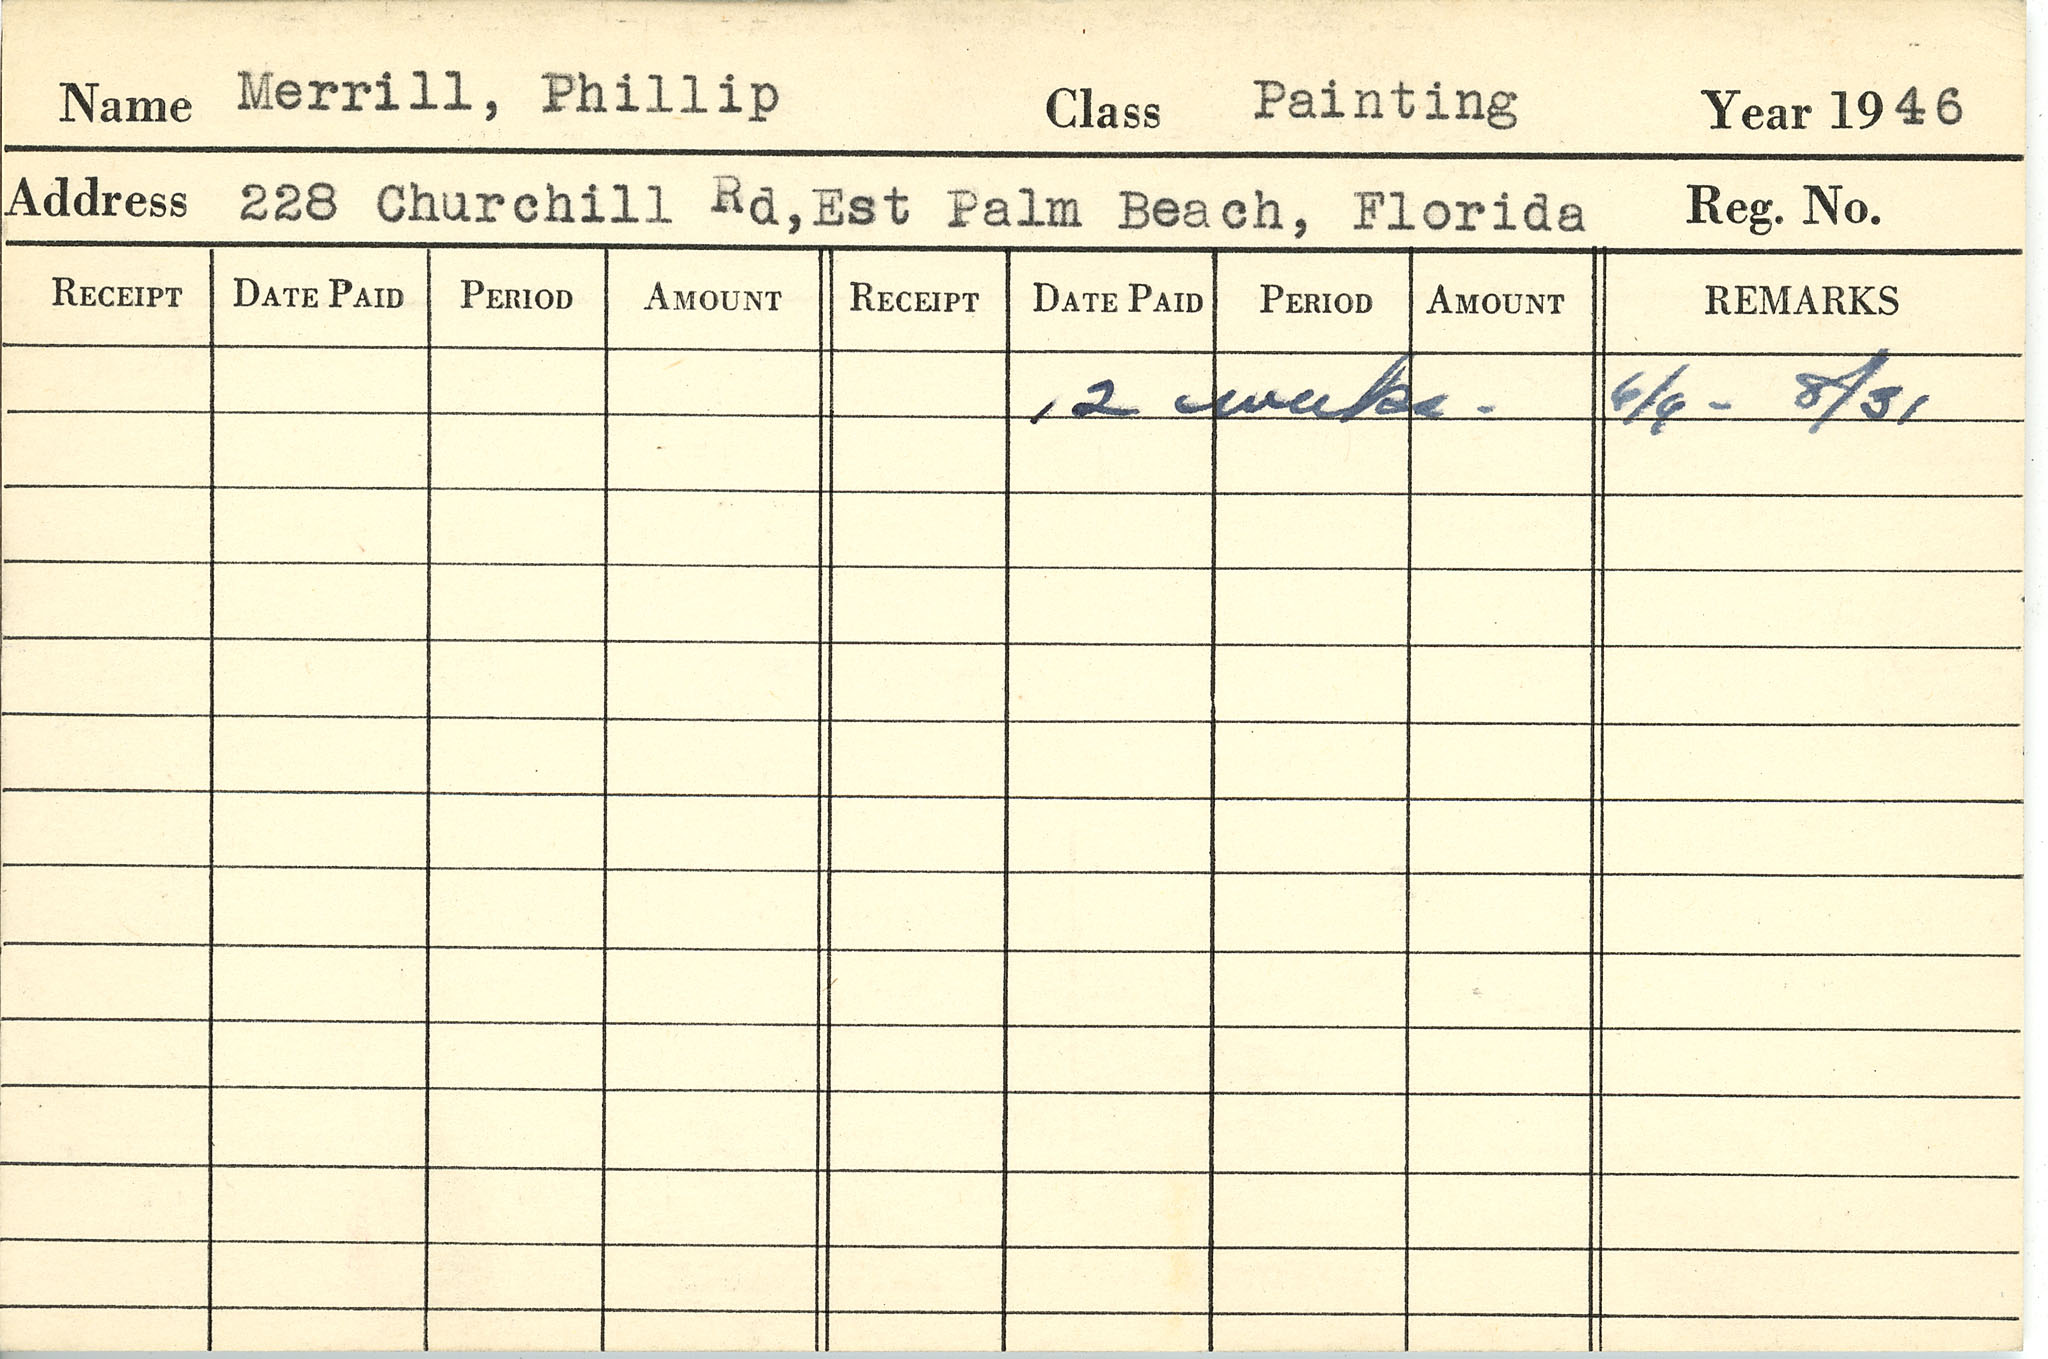 Name Merrill, Phillip Class Painting Year 1946
Address 228 Churchill Rd,Est Palm Beach, Florida Reg. No.
RECEIPT DATE PAID PERIOD AMOUNT RECEIPT DATE PAID PERIOD AMOUNT REMARKS
12 weeks - 6/9 - 8/31